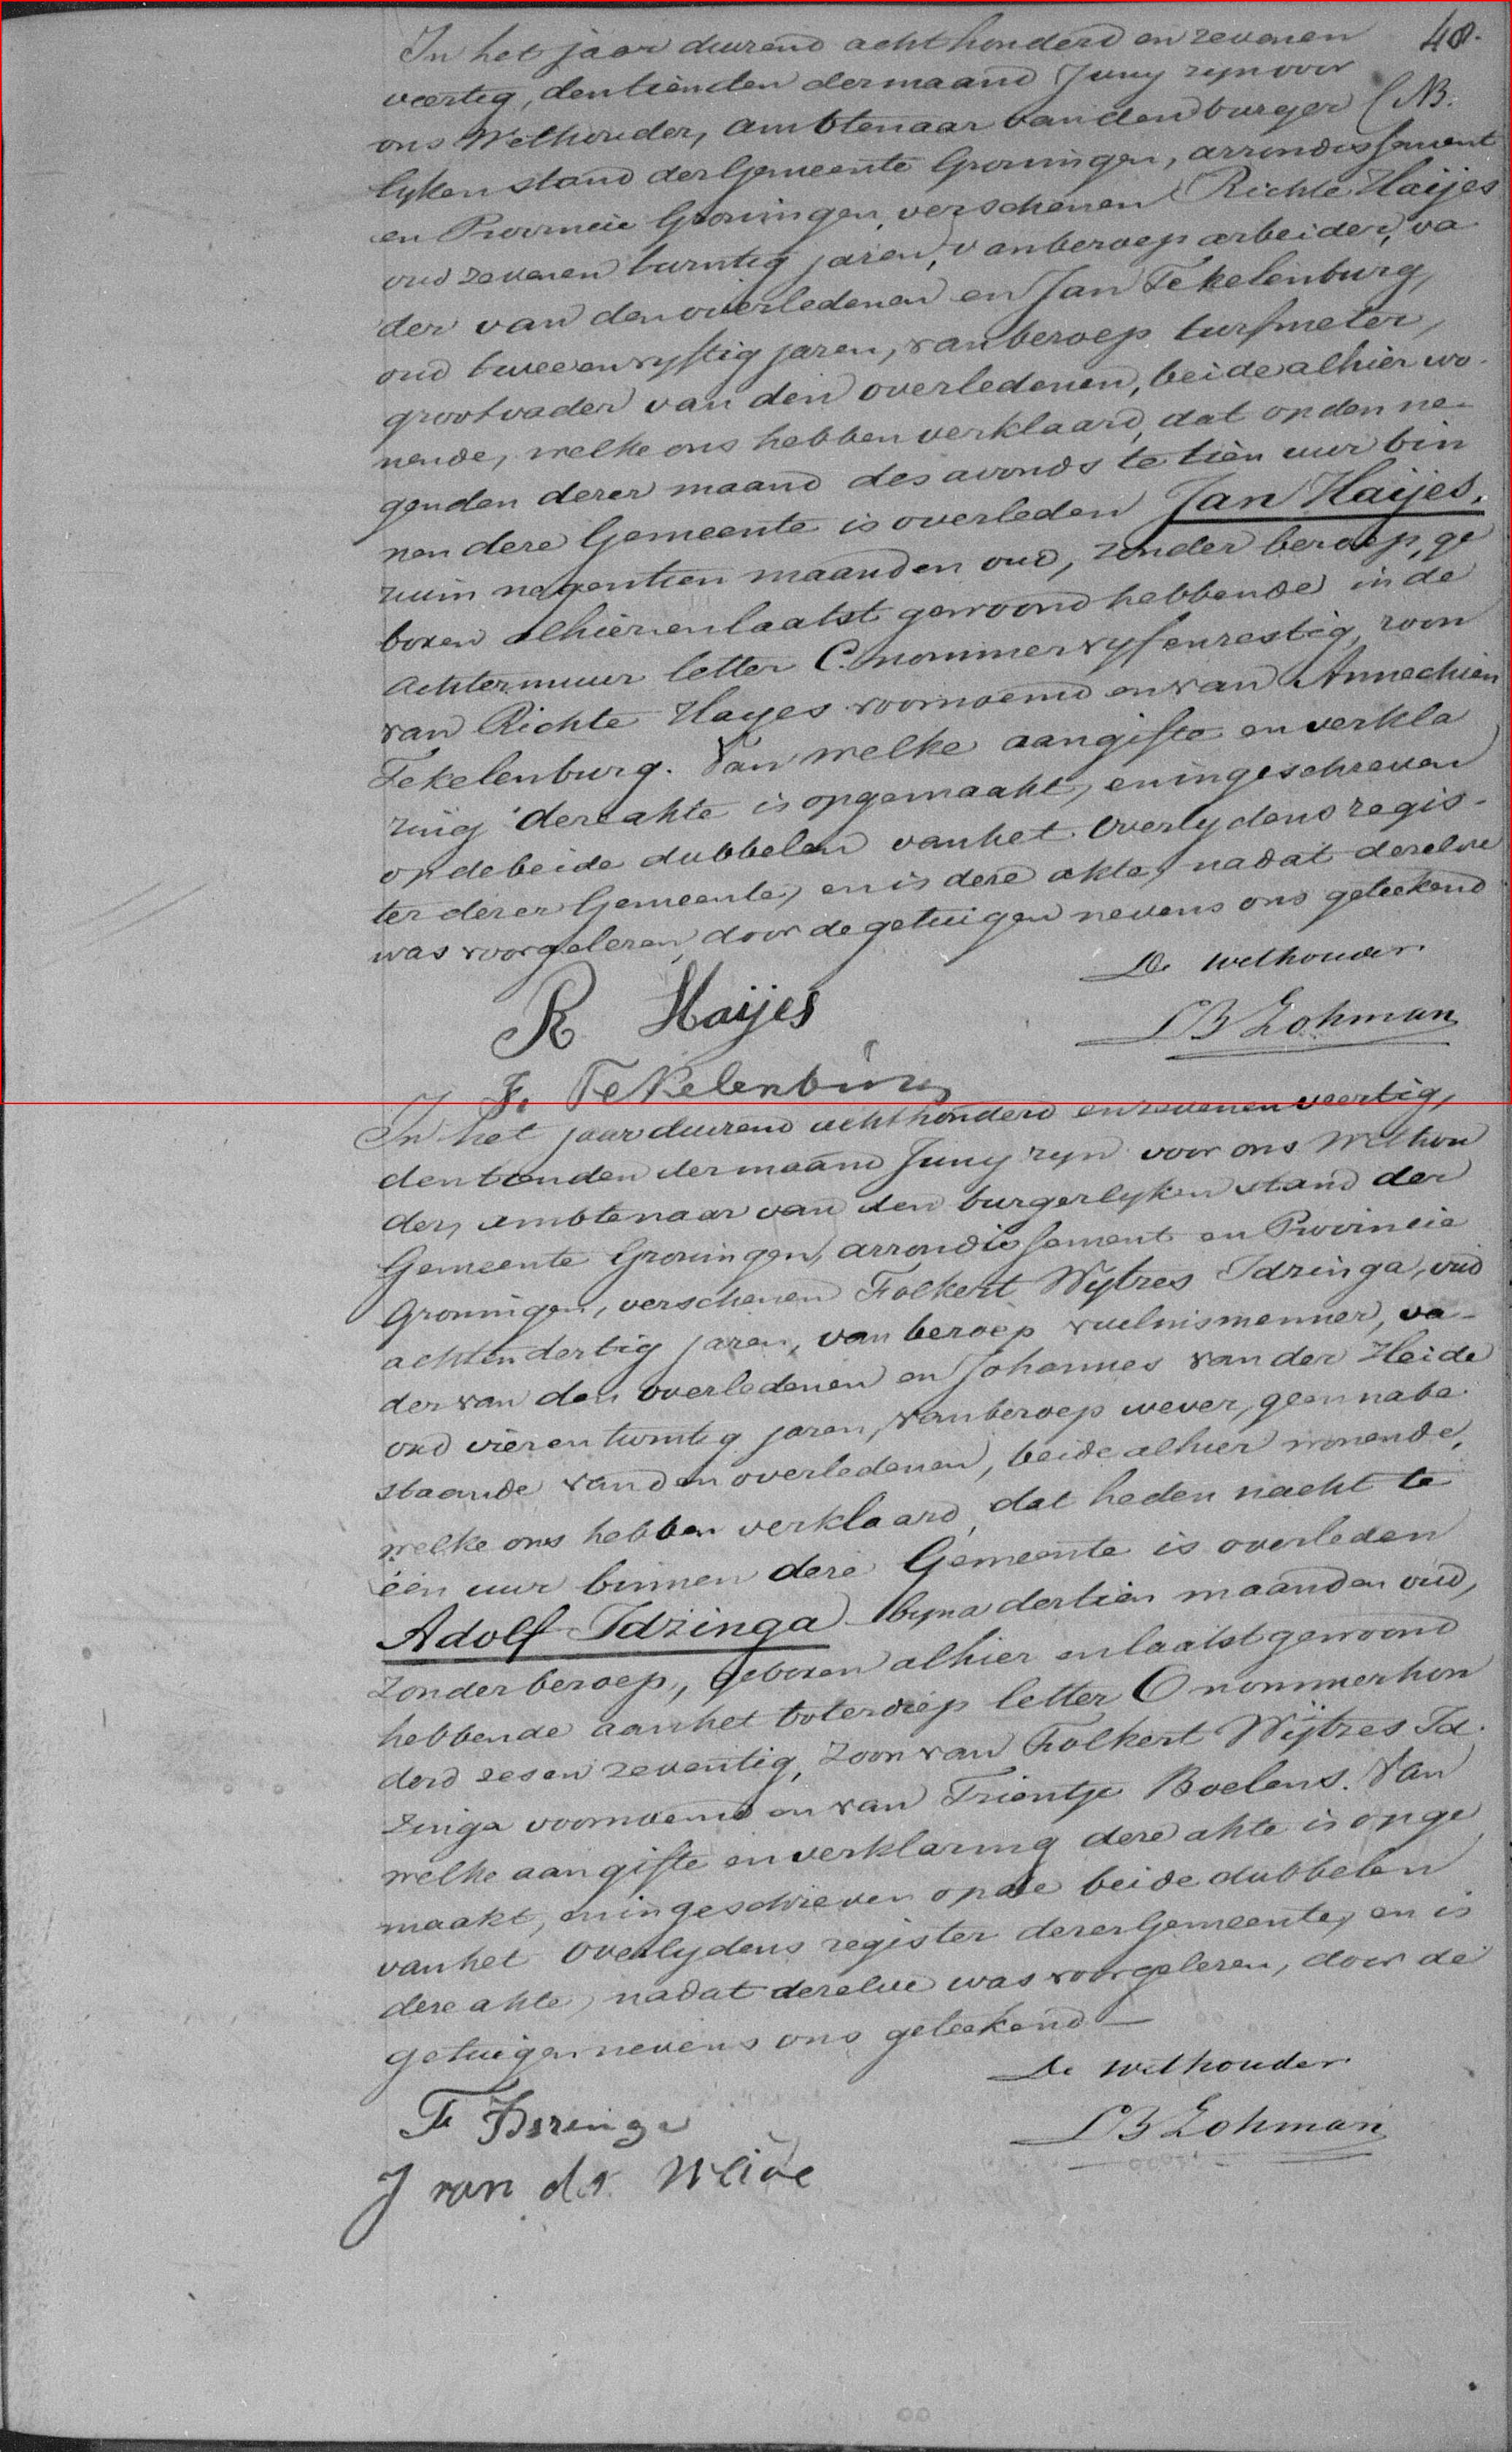 48.
In het jaar duizend acht honderd en zeven en
veertig, den tienden der maand Juny zyn voor
ons Wethouder, ambtenaar van den burger (NB.
lyken stand der Gemeente Groningen, arrondissement
en Provincie Groningen, verschenen Richte Haijes
oud zeven en twintig jaren, van beroep arbeider, va
der van den overledenen en Jan Tekelenburg,
oud twee en vyftig jaren, van beroep turfmeter,
grootvader van den overledenen, beide alhier wo-
nende, welke ons hebben verklaard, dat op den ne-
genden dezer maand des avonds te tien uur bin
nen deze Gemeente is overleden Jan Haijes,
ruim negentien maanden oud, zonder beroep, ge
boren alhier en laatst gewoond hebbende in de
Achtermuur letter C. nommer vyf en zestig, zoon
van Richte Hayes voornoemd en van Annechien
Tekelenburg. Van welke aangifte en verkla
ring deze akte is opgemaakt, en ingeschreven
op de beide dubbelen van het Overlydens regis-
ter dezer Gemeente, en is deze akte, nadat dezelve
was voorgelezen, door de getuigen nevens ons geteekend
De wethouder
R Haijes
Lohman
J. Tekelenburg
In het jaar duizend acht honderd en zeven en veertig,
den tienden der maand Juny zyn voor ons Wethou
der, ambtenaar van den burgerlyken stand der
Gemeente Groningen, arrondissement en Provincie
Groningen, verschenen Folkert Wytzes Idzinga, oud
acht en dertig jaren, van beroep vuilnismenner, va-
der van den overledenen en Johannes van der Heide
oud vier en twintig jaren, van beroep wever, geen nabe
staande van den overledenen, beide alhier wonende,
welke ons hebben verklaard, dat heden nacht te
één uur binnen deze Gemeente is overleden
Adolf Idzinga byna dertien maanden oud,
zonder beroep, geboren alhier en laatst gewoond
hebbende aan het boterdiep letter O nommer hon
derd zes en zeventig, zoon van Folkert Wijtzes Id
zinga voornoemd en van Trientje Boelens. Van
welke aangifte en verklaring deze akte is opge
maakt, en ingeschreven op de beide dubbelen
van het Overlydens register dezer Gemeente, en is
deze akte, nadat dezelve was voorgelezen, door de
getuigen nevens ons geteekend
De wethouder
F Idzinga
Lohman
J van der Heide